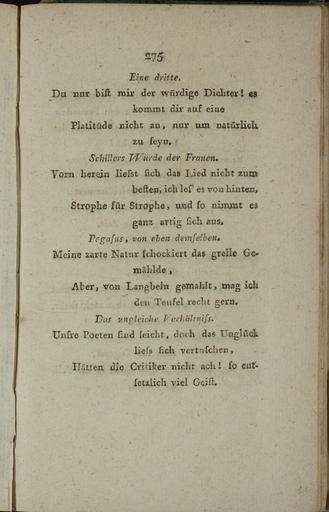 275
Eine dritte.
Du nur biſt mir der würdige Dichter! es
kommt dir auf eine
Platitüde nicht an, nur um natürlich
zu ſeyn.
Schillers Würde der Frauen.
Vorn herein lieſst ſich das Lied nicht zum
beſten, ich leſ' es von hinten,
Strophe für Strophe, und ſo nimmt es
ganz artig ſich aus.
Pegaſus, von eben demſelben.
Meine zarte Natur ſchockiert das grelle Ge-
mählde,
Aber, von Langbein gemahlt, mag ich
den Teufel recht gern.
Das ungleiche Verhältniſs.
Unſre Poeten ſind ſeicht, doch das Unglück
lieſs ſich vertuſchen,
Hätten die Critiker nicht ach! ſo ent-
ſetzlich viel Geiſt.